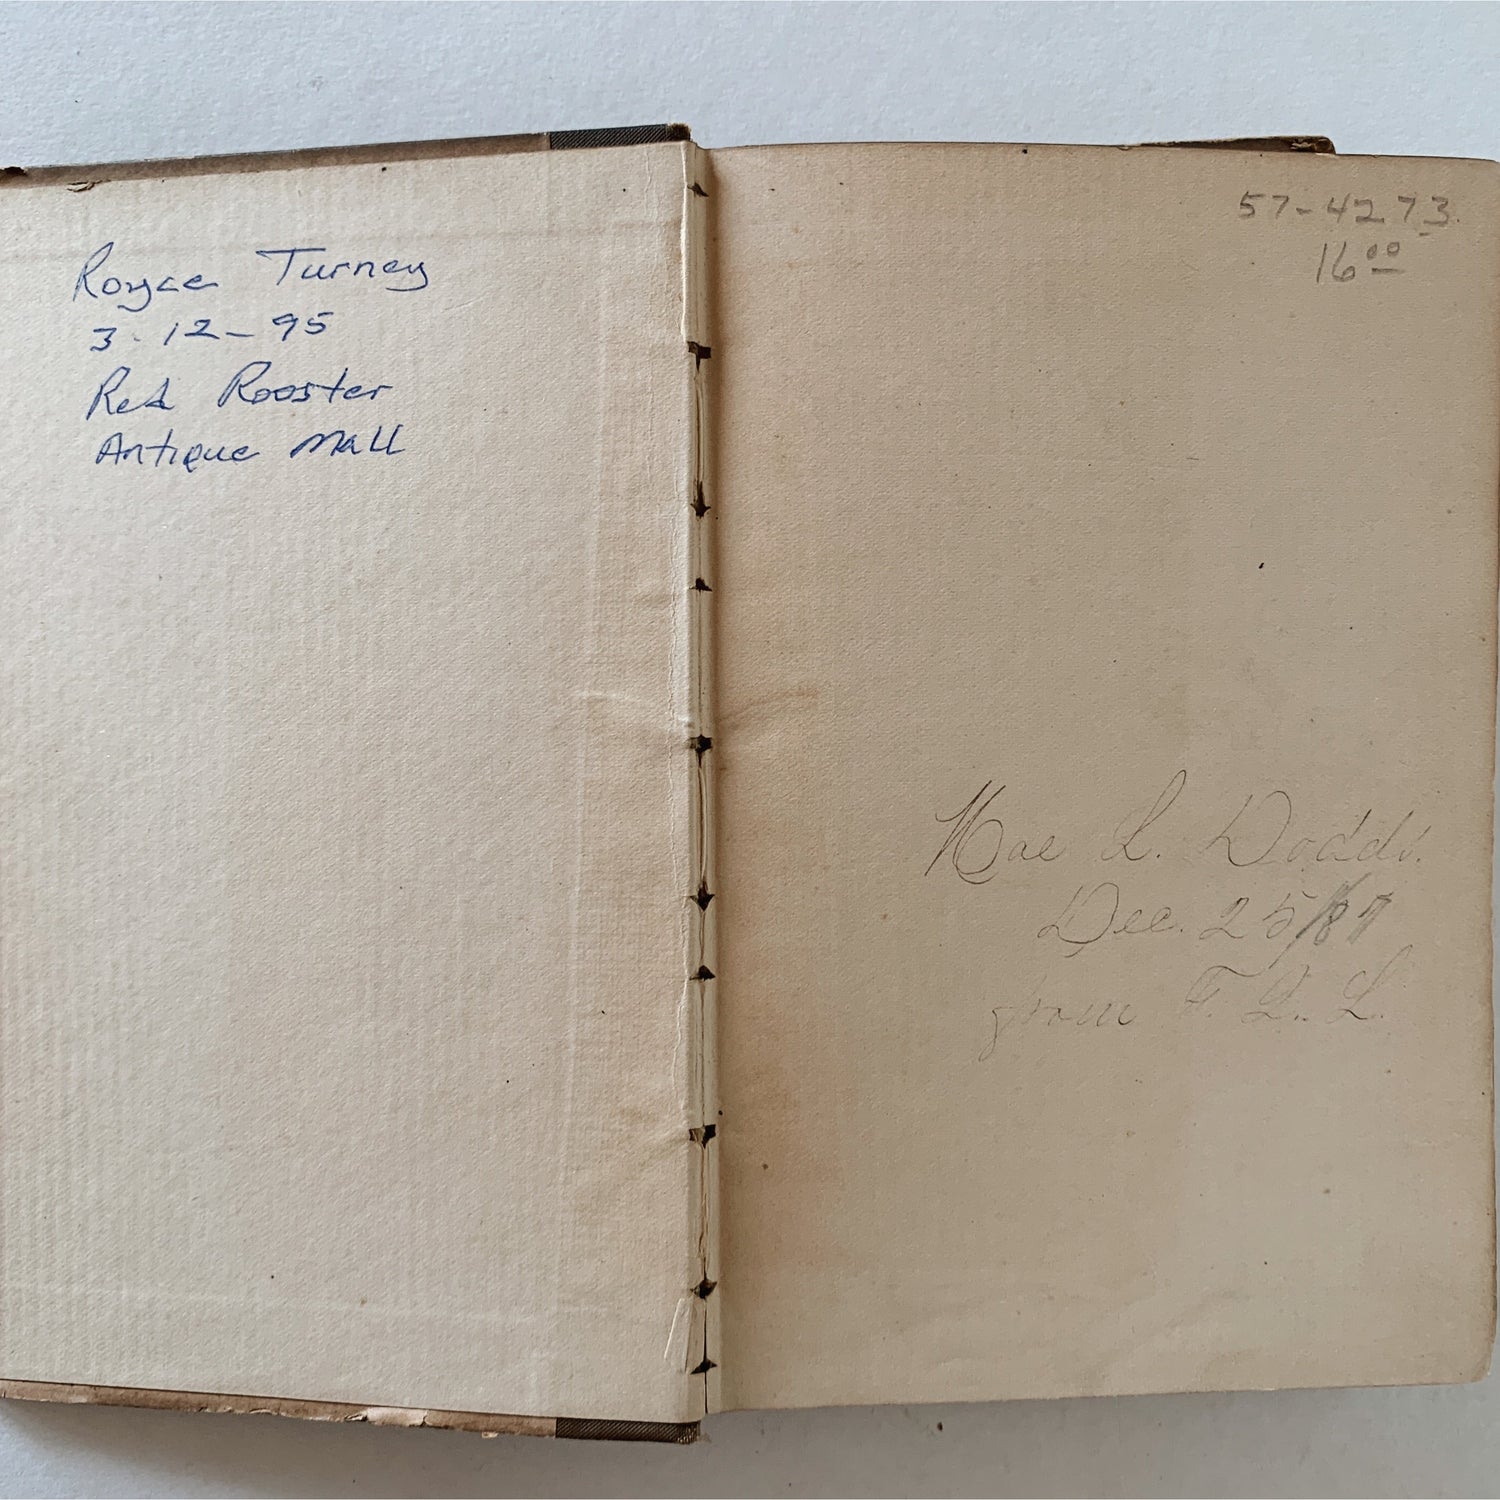 Royce Turney
3-12-95
Red Rooster
Antique Mall
57-4273
16⁰⁰
Mae L. Dodds.
Dec. 25/87
from F. L. L.